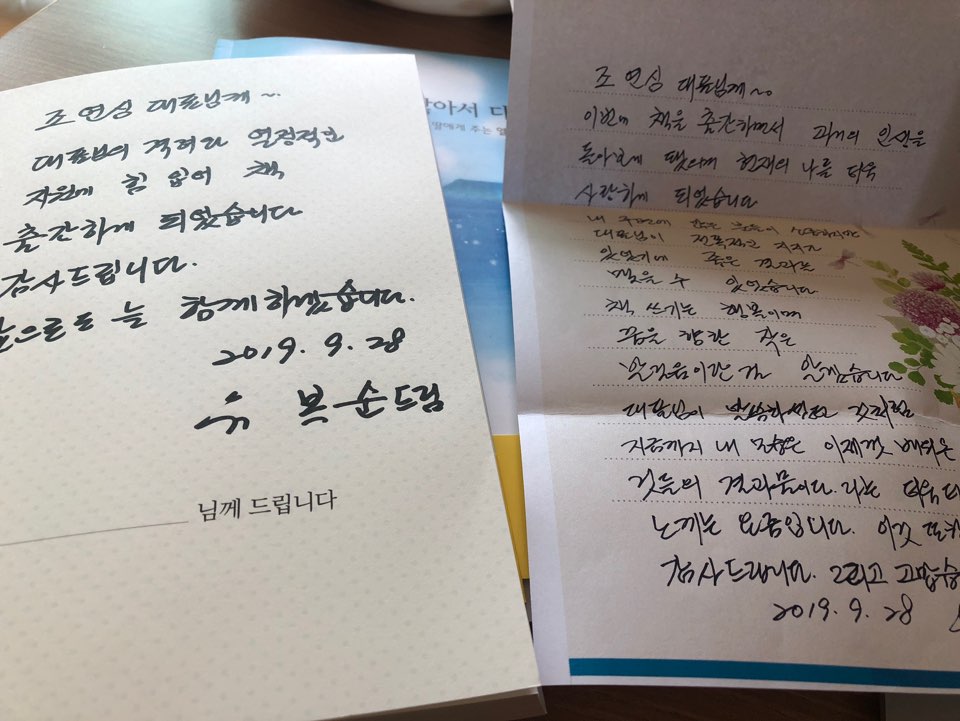 조 연심 대표님께~
대표님의 격려와 열정적인
지원에 힘 입어 책
출간하게 되었습니다
감사드립니다.
앞으로도 늘 함께하겠습니다.
2019. 9. 28
유 복순드림
님께 드립니다
아서 다
딸에게 주는
조 연심 대표님께~
이번에 책을 출간하면서 과거의 인생을
돌아보게 됐으며 현재의 나를 더욱
사랑하게 되었습니다
내 주변에 많은 분들이
대표님이 전폭적인 지지가
있었기에 좋은 결과로
맺을 수 있었습니다
책 쓰기는 행복이며
꿈을 향한 작은
알게됐습니다
대표님이 말씀하셨던 것처럼
지금까지 내 모습은 이제껏 배워온
것들의 결과물이다. 라는
느끼는 요즘입니다. 이것 또한
감사드립니다. 그리고 고맙습
2019. 9. 28